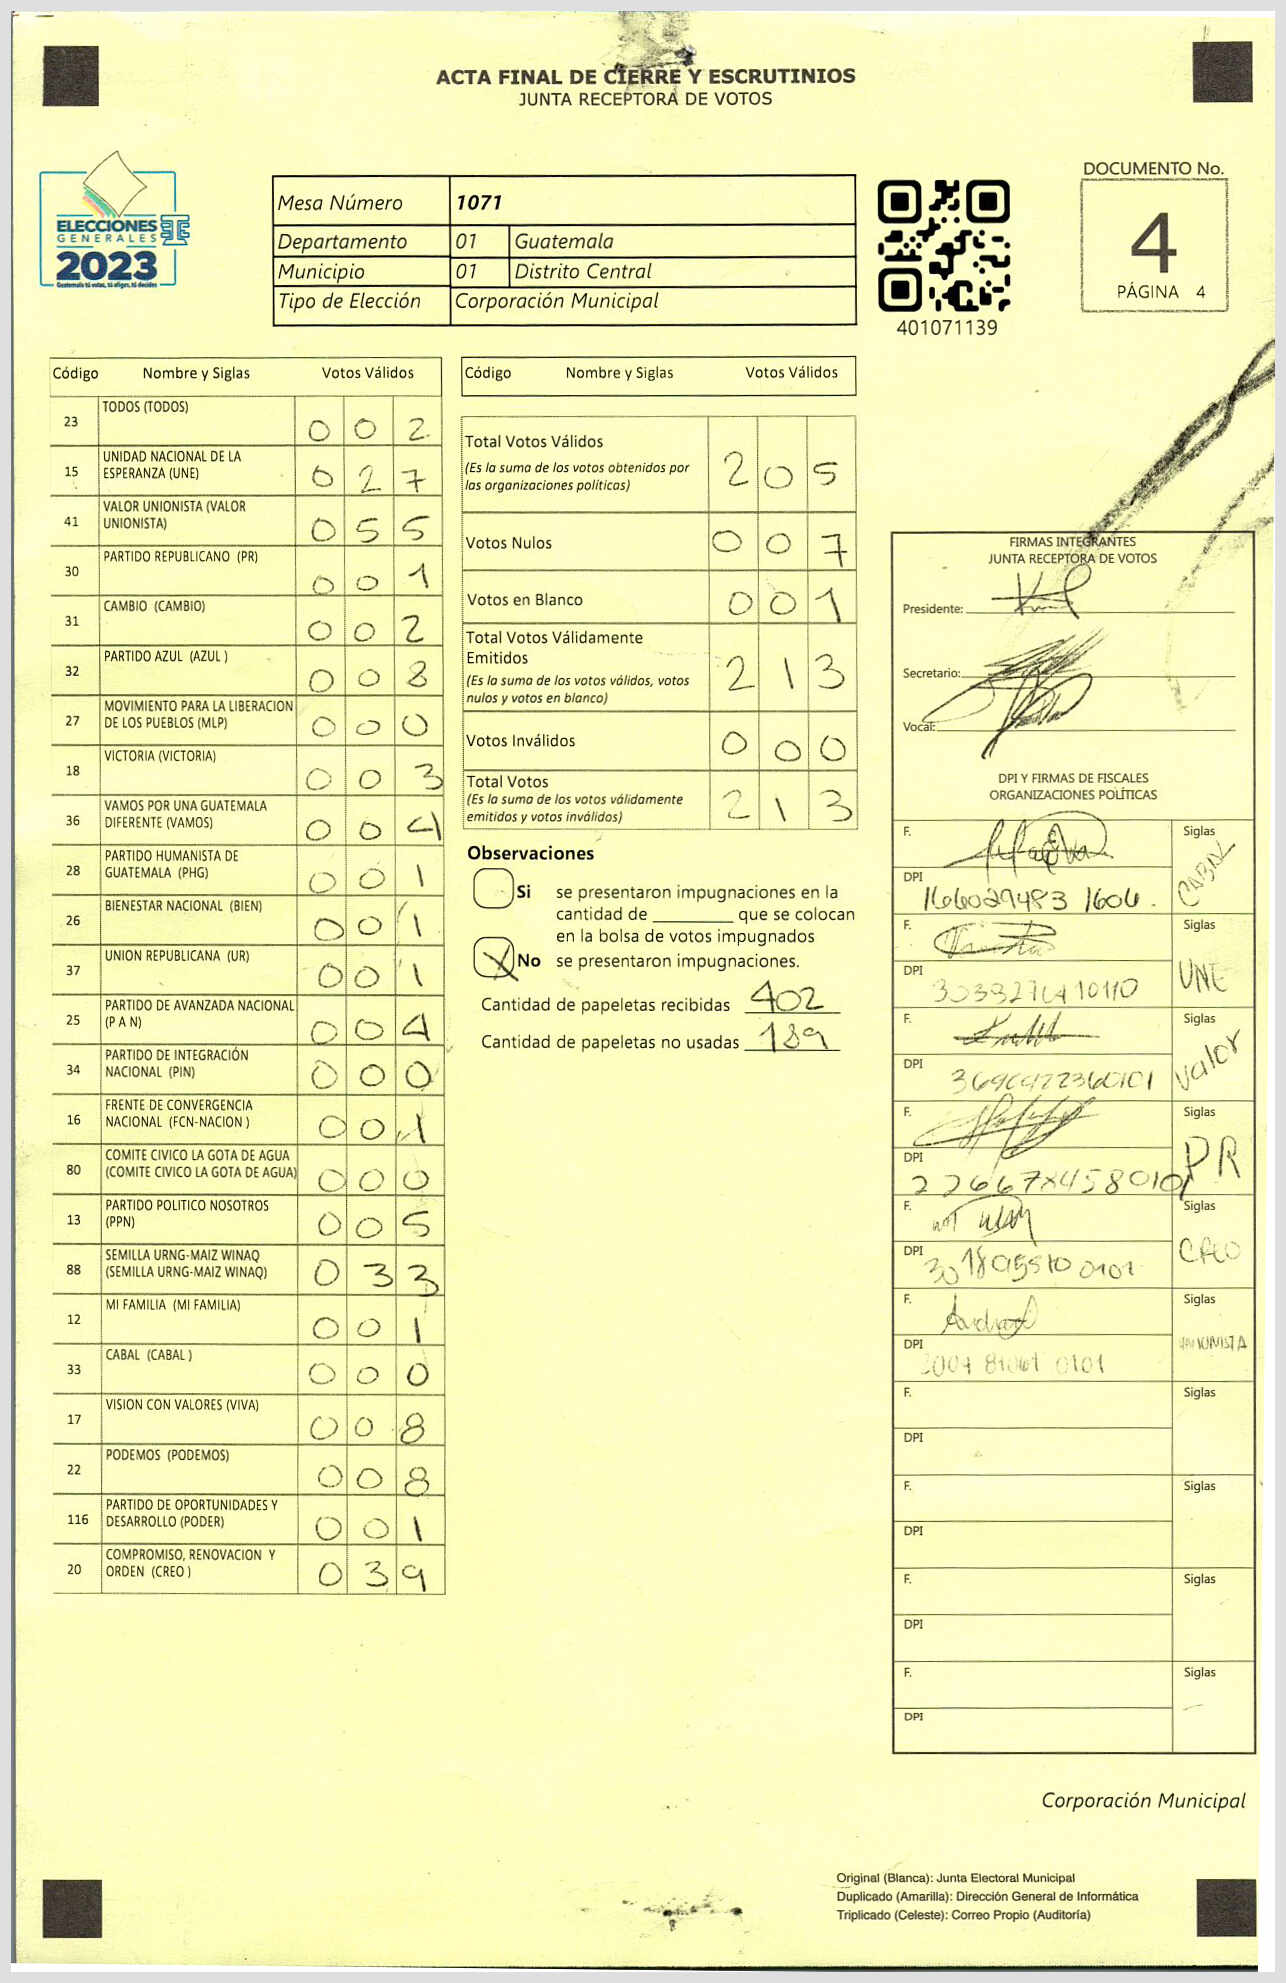 ACTA FINAL DE CIERRE Y ESCRUTINIOS
JUNTA RECEPTORA DE VOTOS
ELECCIONES
GENERALES
2023
Guatemala tú votas, tú eliges, tú decides
Mesa Número 1071
Departamento 01 Guatemala
Municipio 01 Distrito Central
Tipo de Elección Corporación Municipal
401071139
DOCUMENTO No.
4
PÁGINA 4
Código Nombre y Siglas Votos Válidos
23 TODOS (TODOS) 0 0 2
15 UNIDAD NACIONAL DE LA
ESPERANZA (UNE) 0 2 7
41 VALOR UNIONISTA (VALOR
UNIONISTA) 0 5 5
30 PARTIDO REPUBLICANO (PR) 0 0 1
31 CAMBIO (CAMBIO) 0 0 2
32 PARTIDO AZUL (AZUL ) 0 0 8
27 MOVIMIENTO PARA LA LIBERACION
DE LOS PUEBLOS (MLP) 0 0 0
18 VICTORIA (VICTORIA) 0 0 3
36 VAMOS POR UNA GUATEMALA
DIFERENTE (VAMOS) 0 0 4
28 PARTIDO HUMANISTA DE
GUATEMALA (PHG) 0 0 1
26 BIENESTAR NACIONAL (BIEN) 0 0 1
37 UNION REPUBLICANA (UR) 0 0 1
25 PARTIDO DE AVANZADA NACIONAL
(P A N) 0 0 4
34 PARTIDO DE INTEGRACIÓN
NACIONAL (PIN) 0 0 0
16 FRENTE DE CONVERGENCIA
NACIONAL (FCN-NACION ) 0 0 1
80 COMITE CIVICO LA GOTA DE AGUA
(COMITE CIVICO LA GOTA DE AGUA) 0 0 0
13 PARTIDO POLITICO NOSOTROS
(PPN) 0 0 5
88 SEMILLA URNG-MAIZ WINAQ
(SEMILLA URNG-MAIZ WINAQ) 0 3 3
12 MI FAMILIA (MI FAMILIA) 0 0 1
33 CABAL (CABAL ) 0 0 0
17 VISION CON VALORES (VIVA) 0 0 8
22 PODEMOS (PODEMOS) 0 0 8
116 PARTIDO DE OPORTUNIDADES Y
DESARROLLO (PODER) 0 0 1
20 COMPROMISO, RENOVACION Y
ORDEN (CREO ) 0 3 9
Código Nombre y Siglas Votos Válidos
Total Votos Válidos 2 0 5
(Es la suma de los votos obtenidos por
las organizaciones políticas)
Votos Nulos 0 0 7
Votos en Blanco 0 0 1
Total Votos Válidamente
Emitidos 2 1 3
(Es la suma de los votos válidos, votos
nulos y votos en blanco)
Votos Inválidos 0 0 0
Total Votos
(Es la suma de los votos válidamente
emitidos y votos inválidos) 2 1 3
Observaciones
Si se presentaron impugnaciones en la
cantidad de ________ que se colocan
en la bolsa de votos impugnados
X No se presentaron impugnaciones.
Cantidad de papeletas recibidas 402
Cantidad de papeletas no usadas 189
FIRMAS INTEGRANTES
JUNTA RECEPTORA DE VOTOS
Presidente:
Secretario:
Vocal:
DPI Y FIRMAS DE FISCALES
ORGANIZACIONES POLÍTICAS
F. Siglas
DPI 166029483 1606. CABAL
F. Siglas
DPI UNE
F. Siglas
DPI Valor
F. Siglas
DPI PR
F. Siglas
DPI CREO
F. Siglas
DPI UNIONISTA
F. Siglas
DPI
F. Siglas
DPI
F. Siglas
DPI
F. Siglas
DPI
Corporación Municipal
Original (Blanca): Junta Electoral Municipal
Duplicado (Amarilla): Dirección General de Informática
Triplicado (Celeste): Correo Propio (Auditoría)